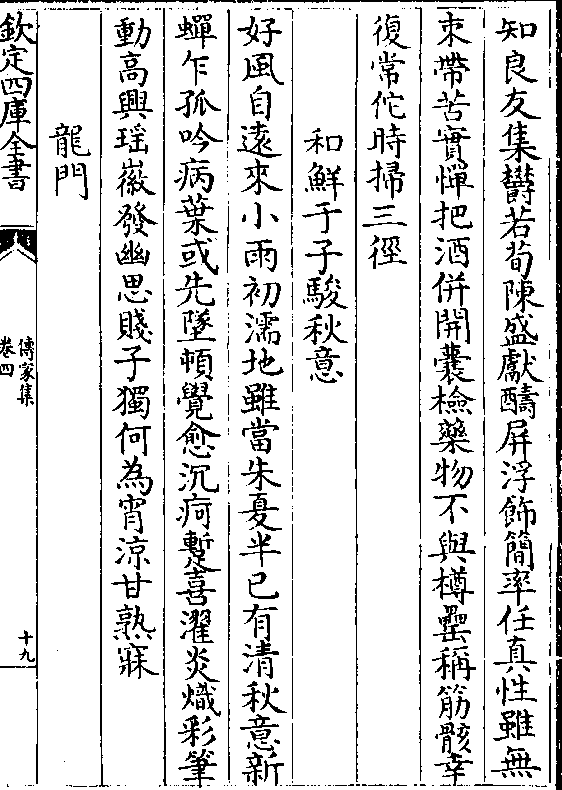 知良友集欝若荀陳盛獻酬屏浮飾簡率任真性雖無
束帶苦實憚把酒併開囊檢藥物不與樽罍稱筋骸幸
復常佗時掃三徑
和鮮于子駿秋意
好風自遠來小雨初濡地雖當朱夏半已有清秋意新
蟬乍孤吟病葉或先墜頓覺愈沉疴蹔喜濯炎熾彩筆
動高興瑶徽發幽思賤子獨何為宵涼甘熟寐
龍門
欽定四庫全書
傳家集
卷四
十九